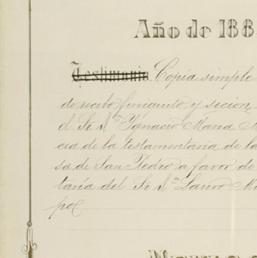 Año de 188
Testimonio Copia simple
de recibo finiquito y secion
d. Sr. Dn. Ygnacio Maria
cia de la testamentaria de la
sa de San Pedro a favor de
taria del Sr. Dn. Lauro